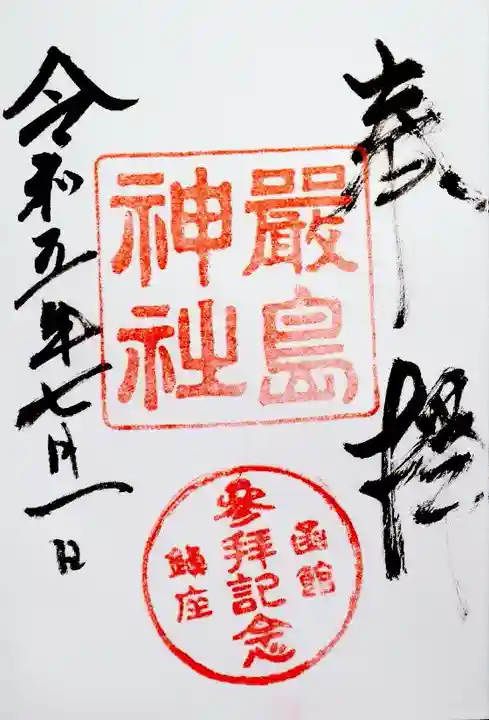 奉拝
嚴島
神社
函館
参拝記念
鎮座
令和五年七月一日